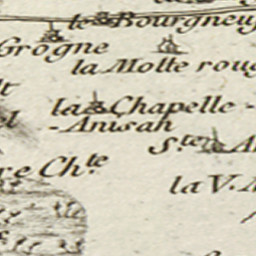 le Bourgneuf
Grogne
la Motte roug
la Chapelle -
- Anisan
S.te A
re Ch.te
la V.